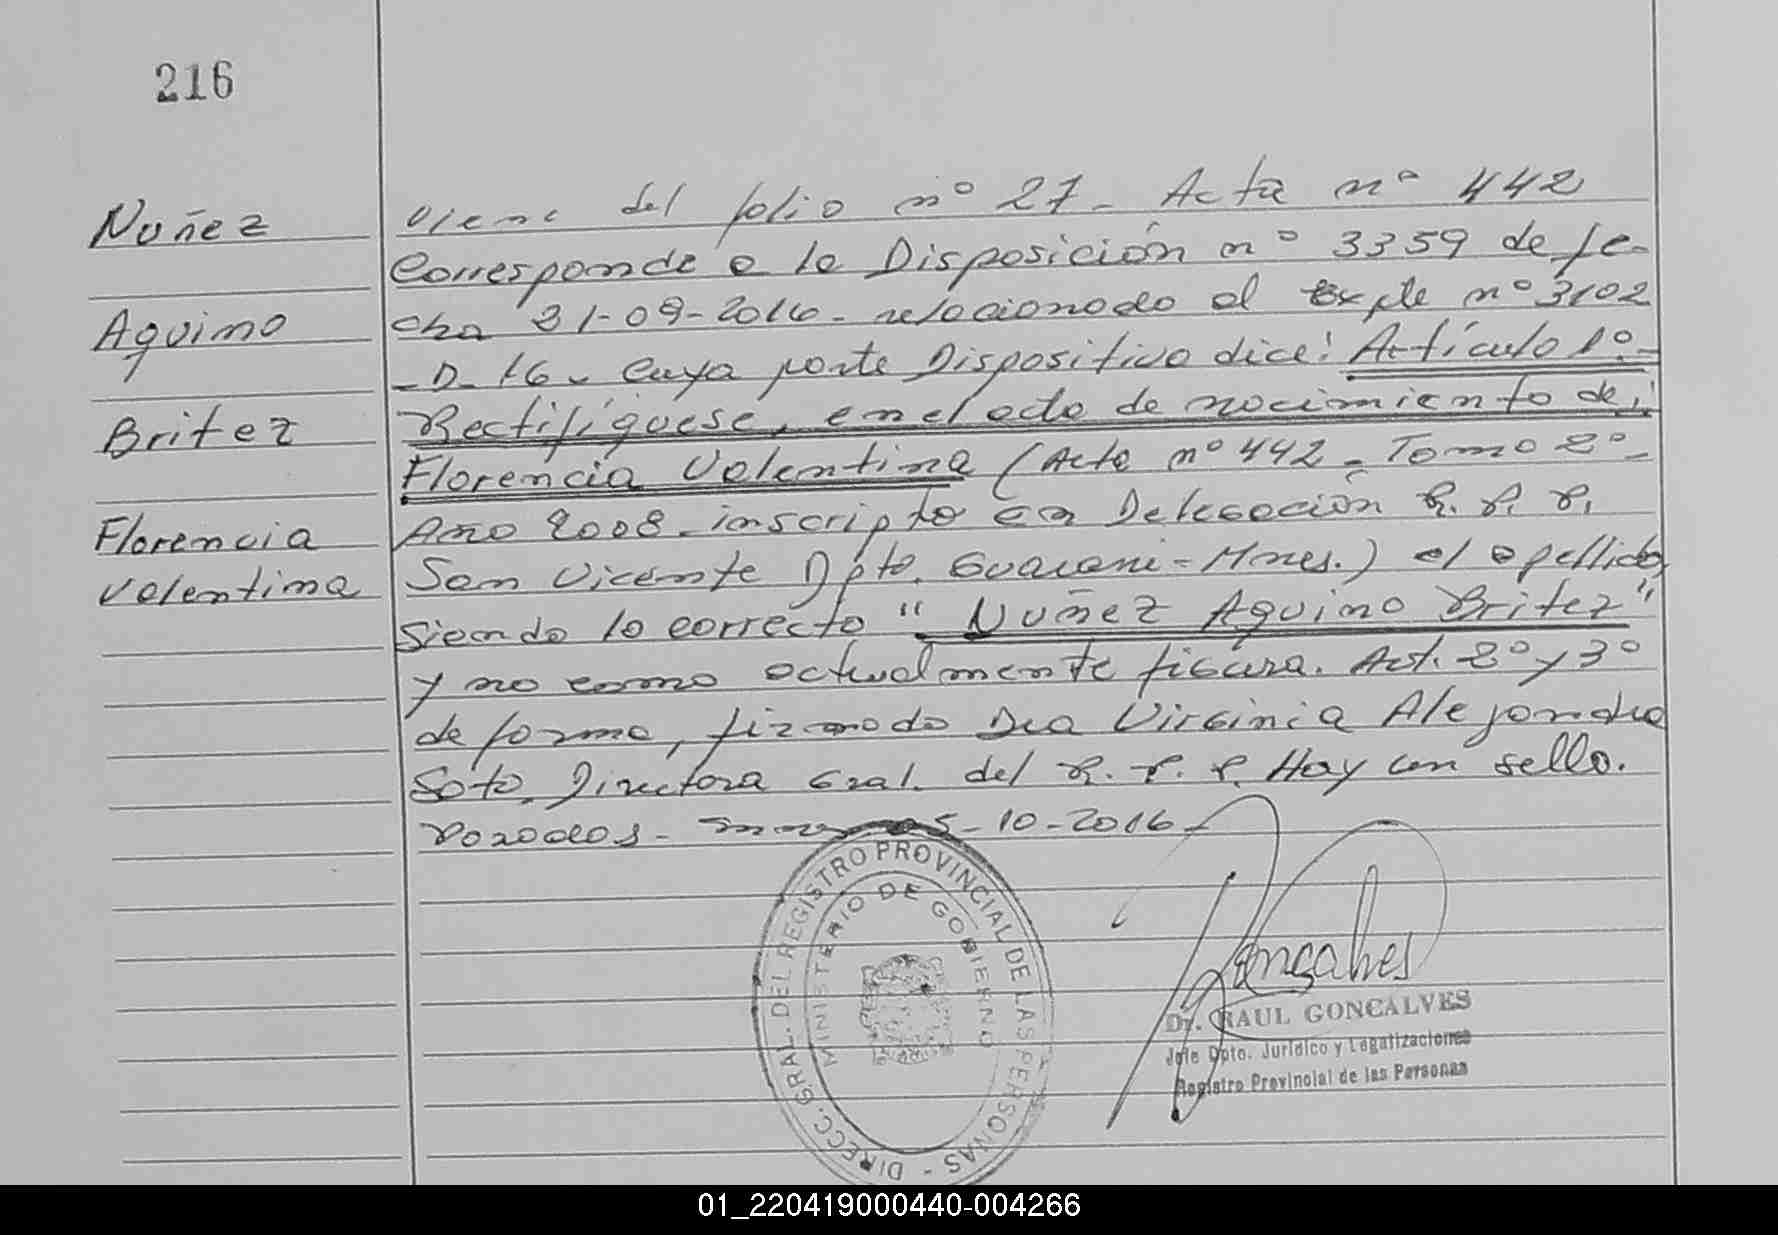 216
Nuñez
Aquino
Britez
Florencia
Valentina
Viene del folio nº 27 - Acta nº 442
Corresponde a la Disposición nº 3359 de fe-
cha 31-08-2016 - relacionado al Expte nº 3102
- D - 16 - Cuya parte Dispositiva dice: Artículo 1º -
Rectifíquese, en el acta de nacimiento de:
Florencia Valentina (Acta nº 442 - Tomo 2º -
Año 2008 - inscripta en Delegación R. P. P.
San Vicente Dpto. Guarani - Mnes.) el apellido,
siendo lo correcto "Nuñez Aquino Britez"
y no como actualmente figura. Art. 2º y 3º
de forma, firmado Dra Virginia Alejandra
Soto. Directora Gral. del R. P. P. Hay un sello.
Posadas - Mnes 05-10-2016 -
DIRECC. GRAL. DEL REGISTRO PROVINCIAL DE LAS PERSONAS -
MINISTERIO DE GOBIERNO
Goncalves
Dr. RAUL GONCALVES
Jefe Dpto. Jurídico y Legalizaciones
Registro Provincial de las Personas
01_220419000440-004266